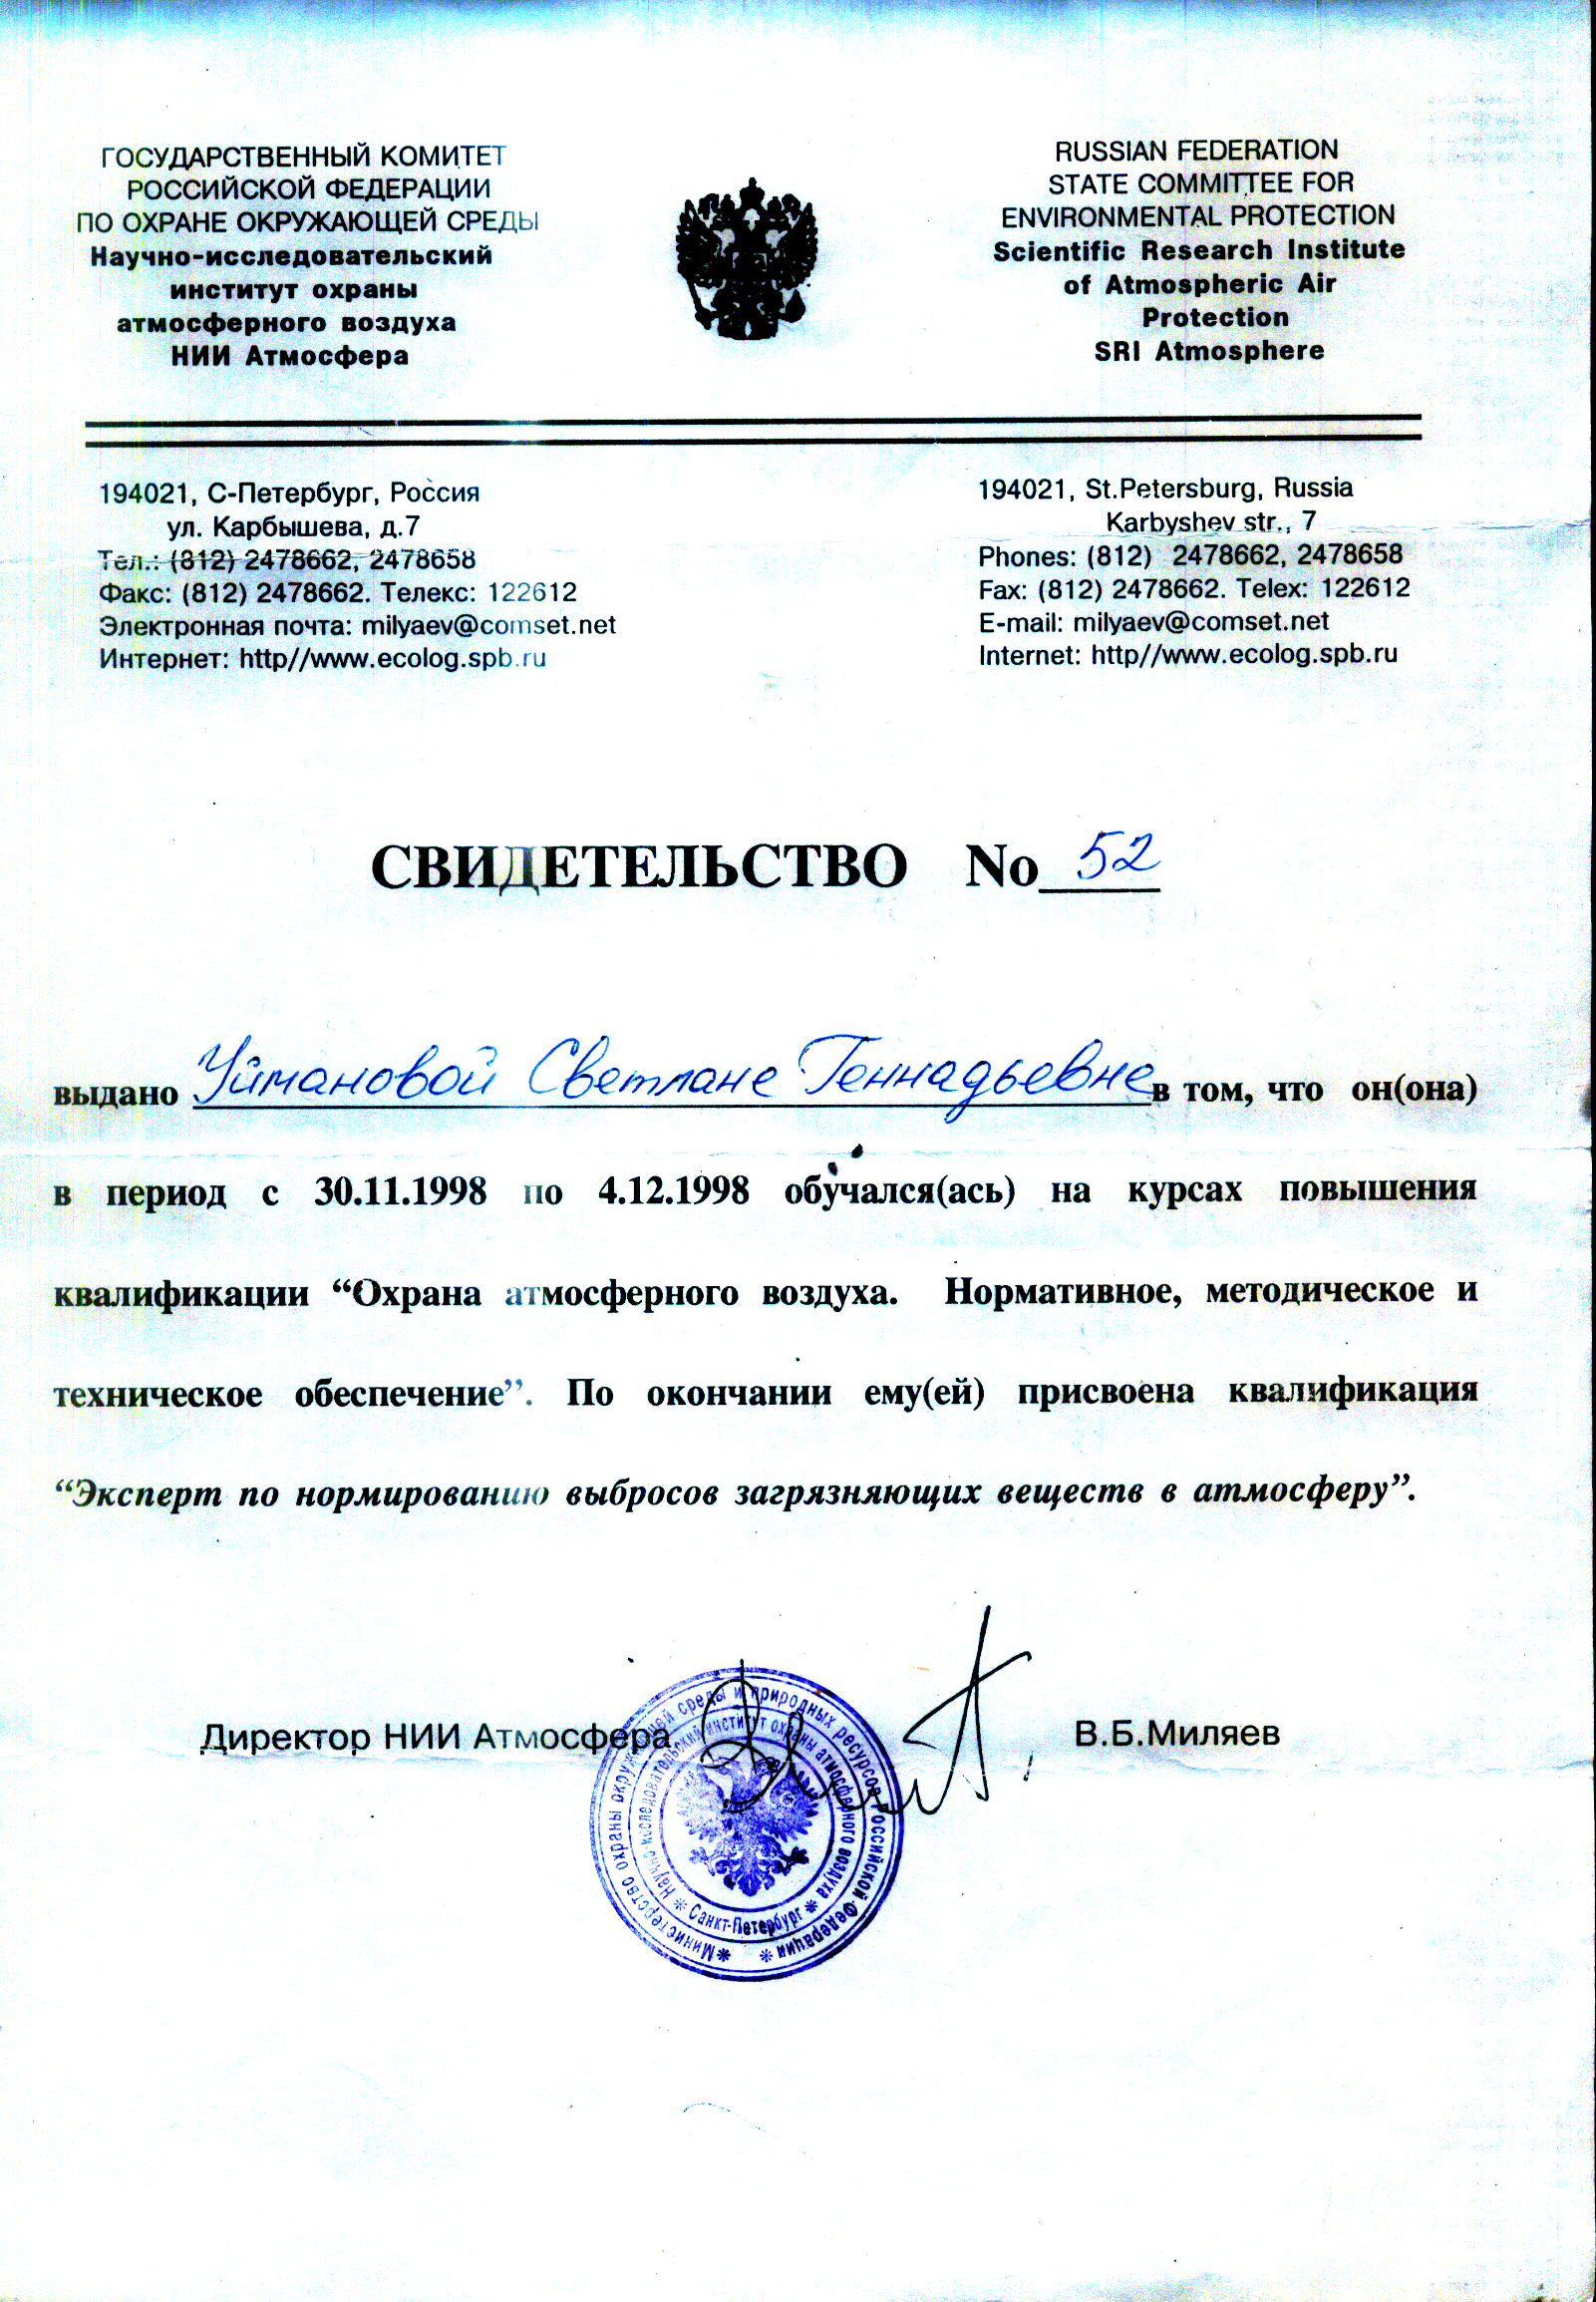 ГОСУДАРСТВЕННЫЙ КОМИТЕТ
РОССИЙСКОЙ ФЕДЕРАЦИИ
ПО ОХРАНЕ ОКРУЖАЮЩЕЙ СРЕДЫ
Научно-исследовательский
институт охраны
атмосферного воздуха
НИИ Атмосфера
RUSSIAN FEDERATION
STATE COMMITTEE FOR
ENVIRONMENTAL PROTECTION
Scientific Research Institute
of Atmospheric Air
Protection
SRI Atmosphere
194021, С-Петербург, Россия
ул. Карбышева, д.7
Тел.: (812) 2478662, 2478658
Факс: (812) 2478662. Телекс: 122612
Электронная почта: milyaev@comset.net
Интернет: http//www.ecolog.spb.ru
194021, St.Petersburg, Russia
Karbyshev str., 7
Phones: (812) 2478662, 2478658
Fax: (812) 2478662. Telex: 122612
E-mail: milyaev@comset.net
Internet: http//www.ecolog.spb.ru
СВИДЕТЕЛЬСТВО No 52
выдано Уймановой Светлане Геннадьевне в том, что он(она)
в период с 30.11.1998 по 4.12.1998 обучался(ась) на курсах повышения
квалификации “Охрана атмосферного воздуха. Нормативное, методическое и
техническое обеспечение”. По окончании ему(ей) присвоена квалификация
“Эксперт по нормированию выбросов загрязняющих веществ в атмосферу”.
Директор НИИ Атмосфера
В.Б.Миляев
Министерство охраны окружающей среды и природных ресурсов Российской Федерации
Научно-исследовательский институт охраны атмосферного воздуха
Санкт-Петербург